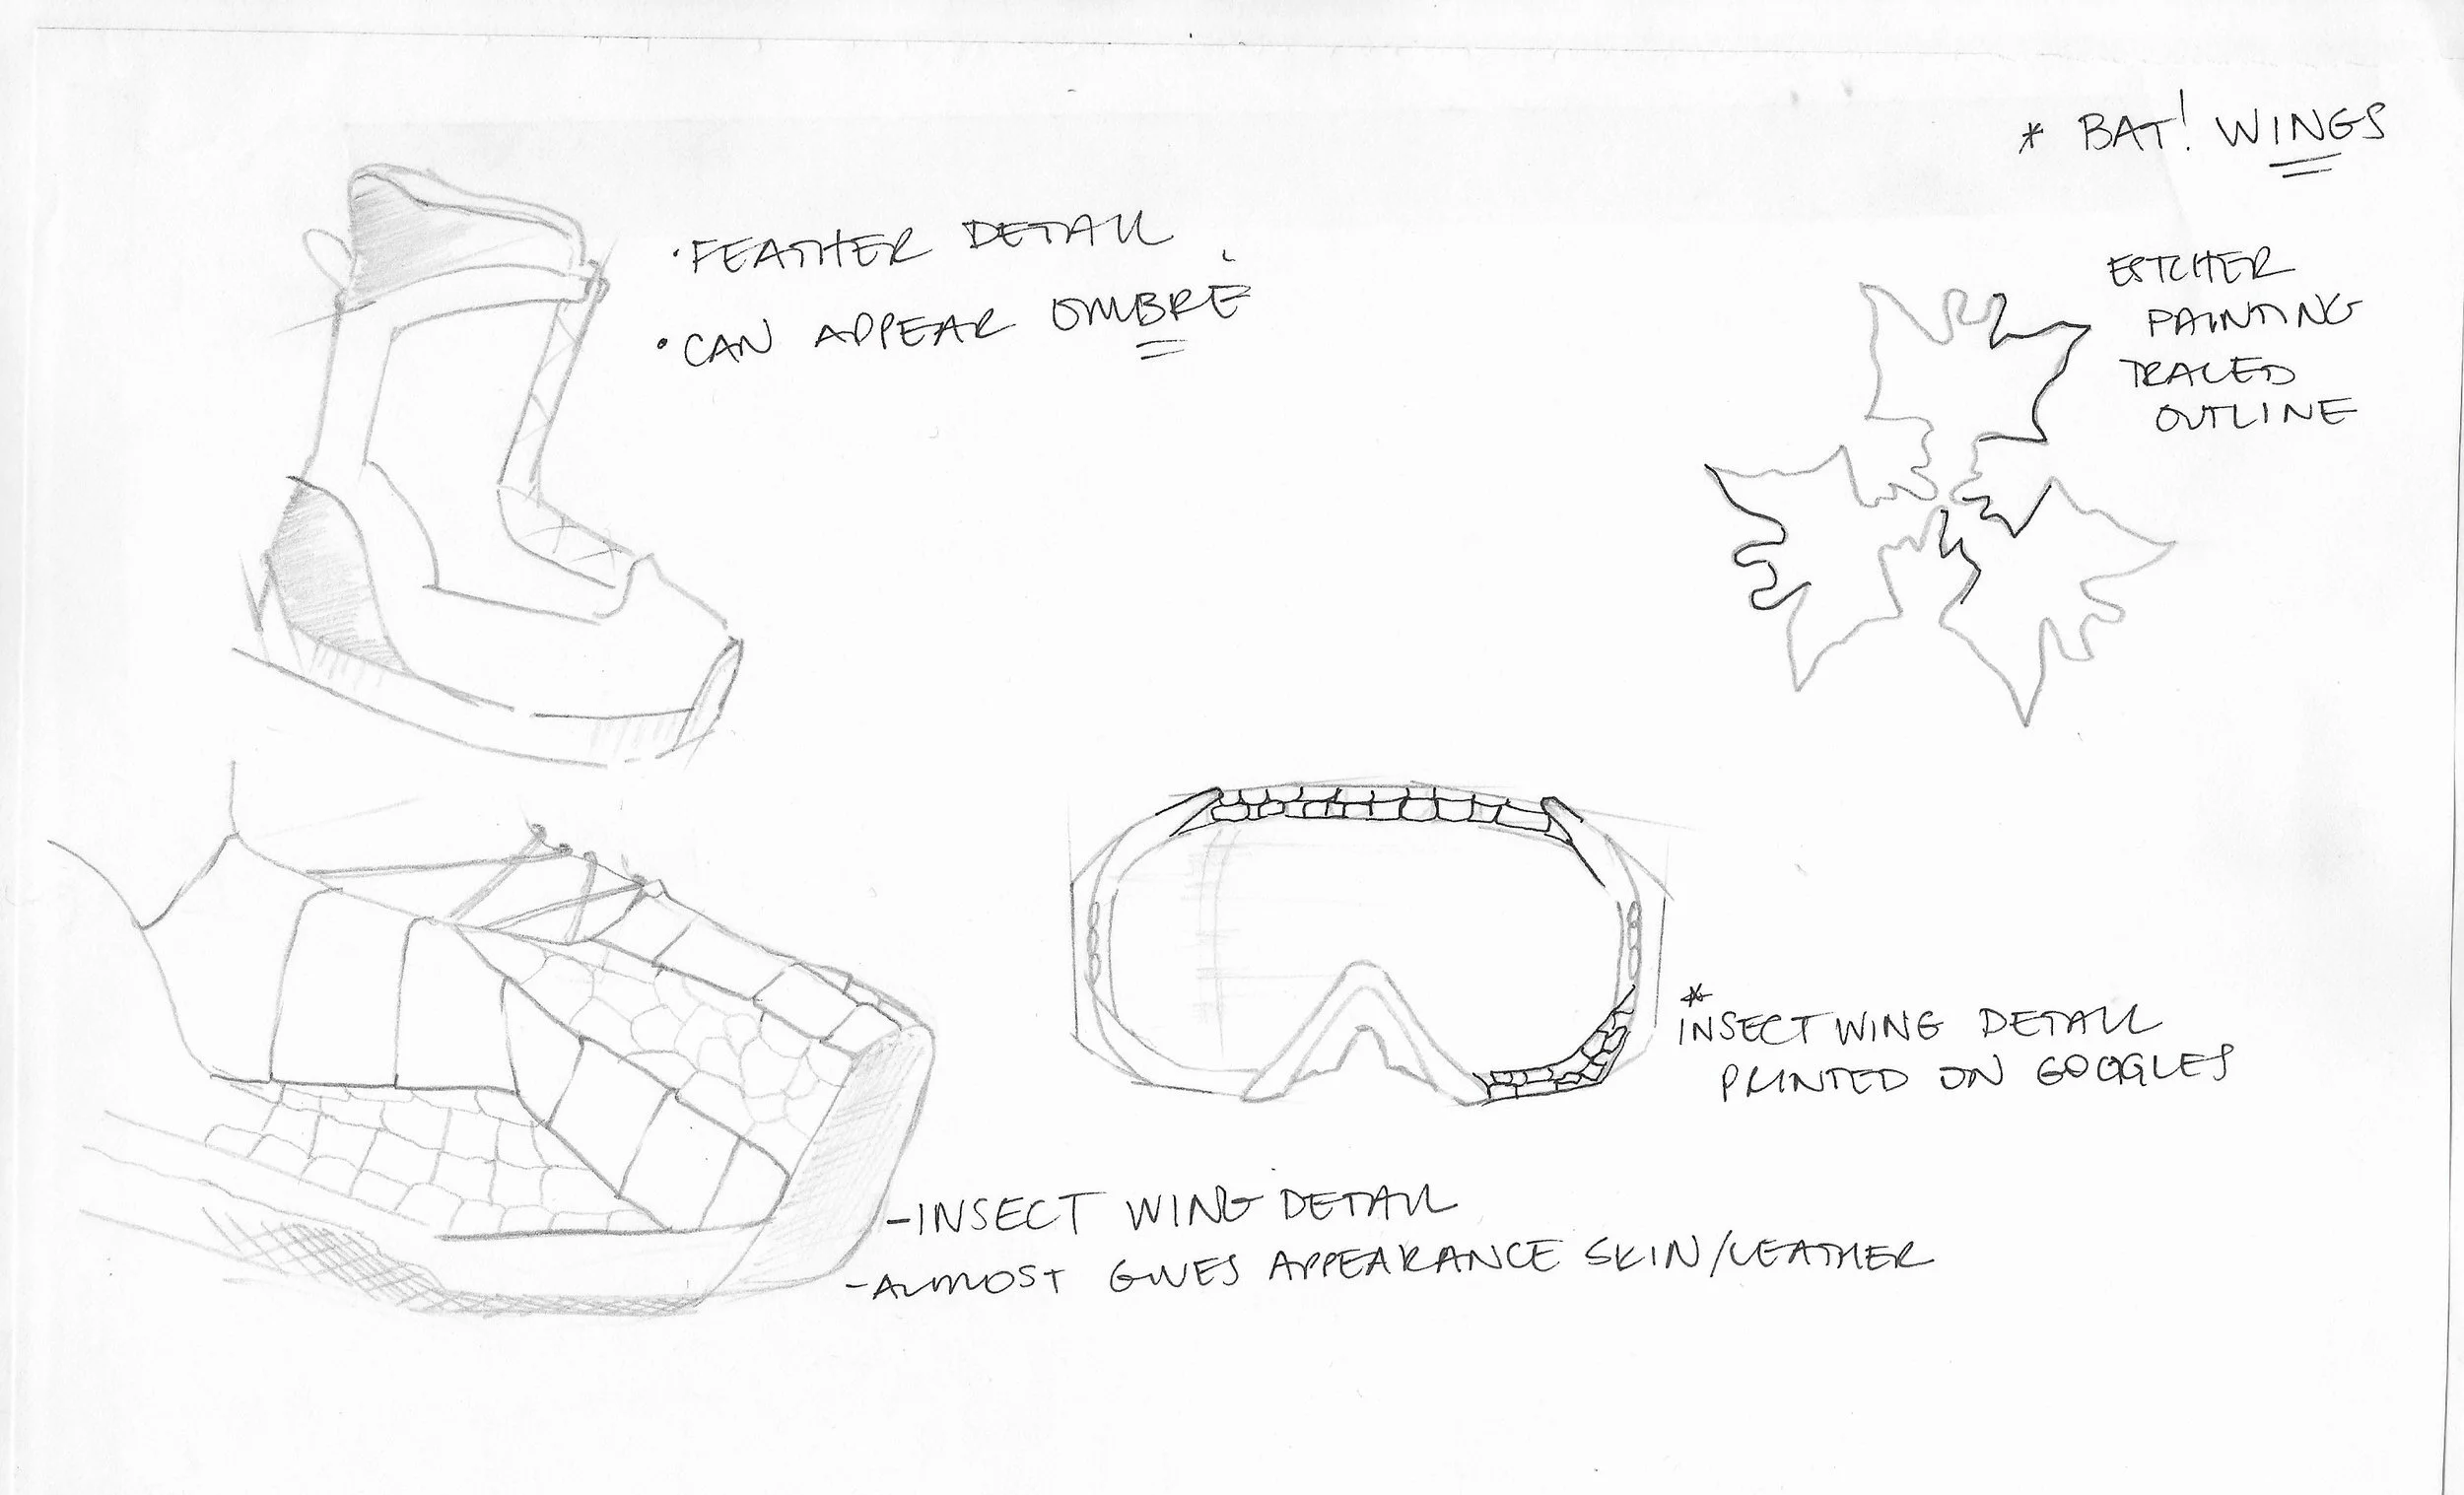 * BAT! WINGS
• FEATHER DETAIL
• CAN APPEAR OMBRÈ
ESTCHER
PAINTING
TRACED
OUTLINE
*
INSECT WING DETAIL
PRINTED ON GOGGLES
- INSECT WING DETAIL
- ALMOST GIVES APPEARANCE SKIN/LEATHER